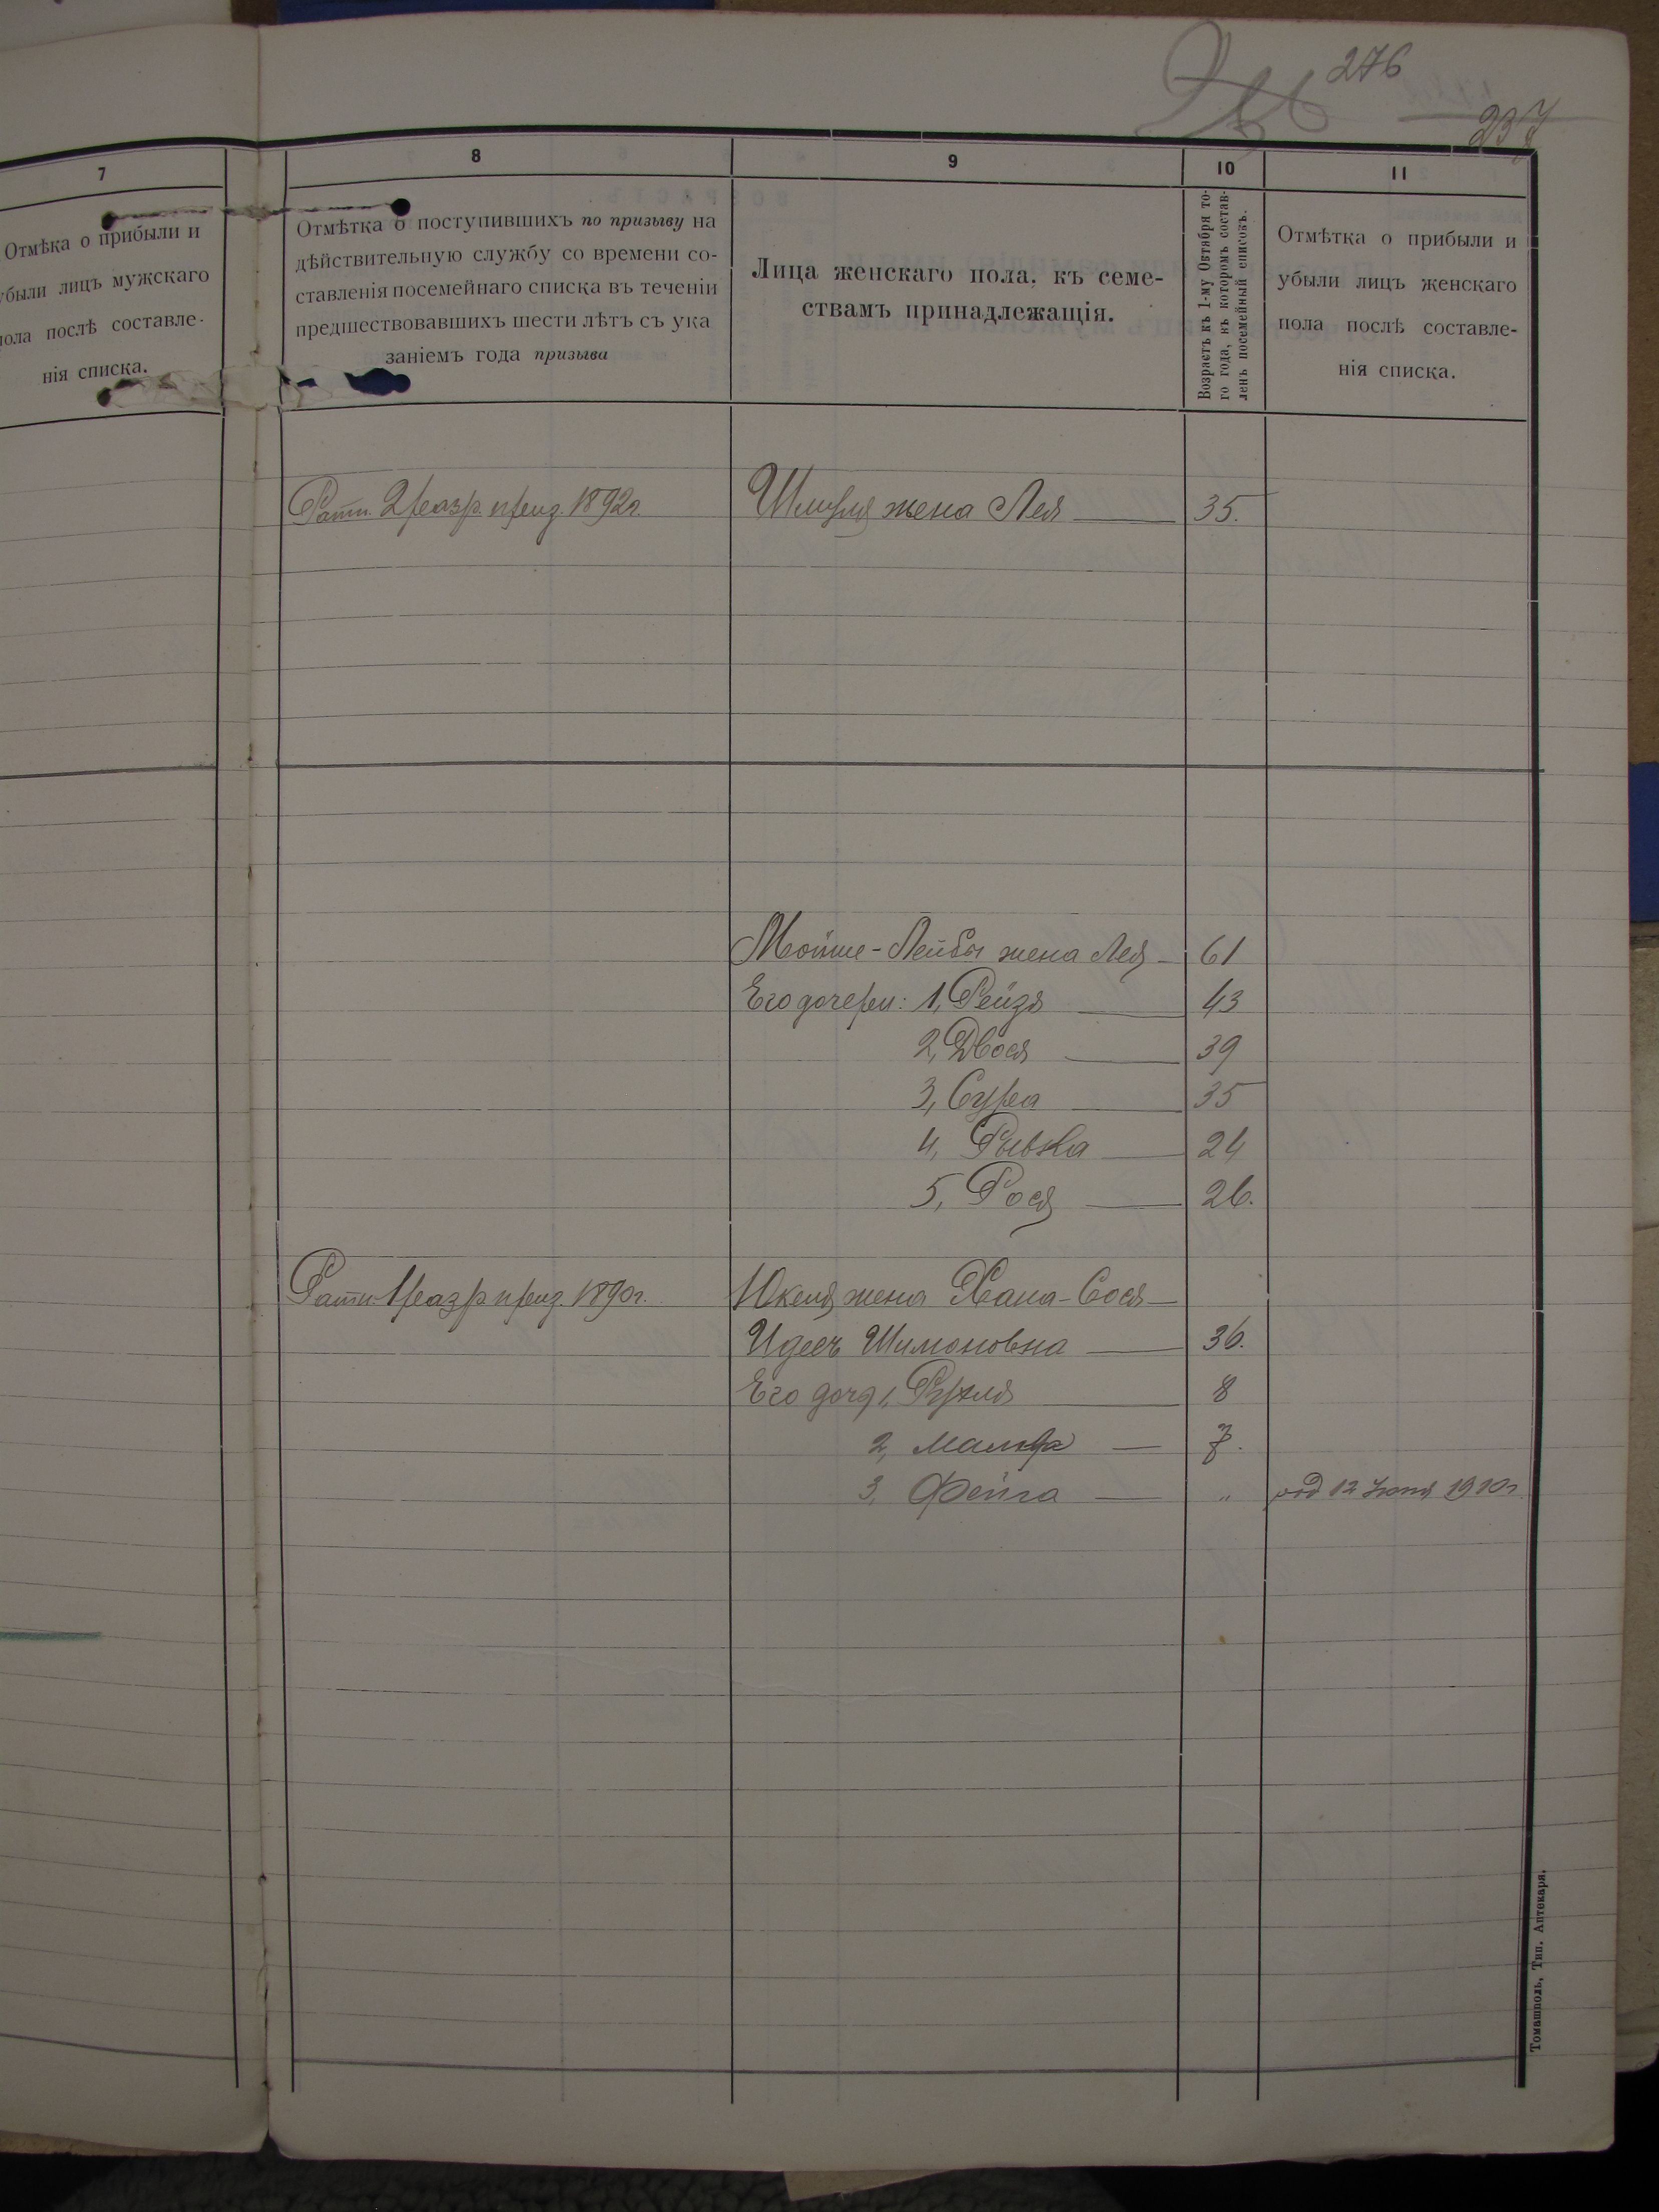 276
237
7
8
9
10
11
Отмѣка о прибыли и
убыли лицъ мужскаго
пола послѣ составле-
нія списка.
Отмѣтка о поступившихъ по призыву на
дѣйствительную службу со времени со-
ставленія посемейнаго списка въ теченіи
предшествовавшихъ шести лѣтъ съ ука
заніемъ года призыва
Лица женскаго пола, къ семе-
ствамъ принадлежащія.
Возрастъ къ 1-му Октября то-
го года, въ которомъ состав-
ленъ посемейный списокъ.
Отмѣтка о прибыли и
убыли лицъ женскаго
пола послѣ составле-
нія списка.
Ратн. 2 разр. приз. 1892г. Шмуля жена Лея 35.
Мойше-Лейбы жена Лея 61
Его дочери: 1, Рейзя 43
2, Двося 39
3, Сура 35
4, Рывка 24
5, Рося 26.
Ратн. 1 разр приз. 1890г. Юкеля жена Хана-Сося
Идесъ Шимоновна 36.
Его доч 1, Рухля 8
2, Малка 7.
3, Фейга " род 12 Іюня 1910г
Томашполь, Тип. Аптекаря.